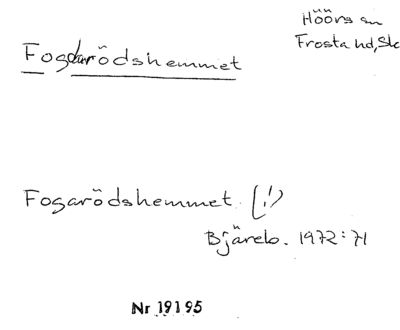 Höörs sn
Frosta hd, Sk
Fogdarödshemmet
Fogarödshemmet. (!)
Bjäreb. 1972:71
Nr 19195